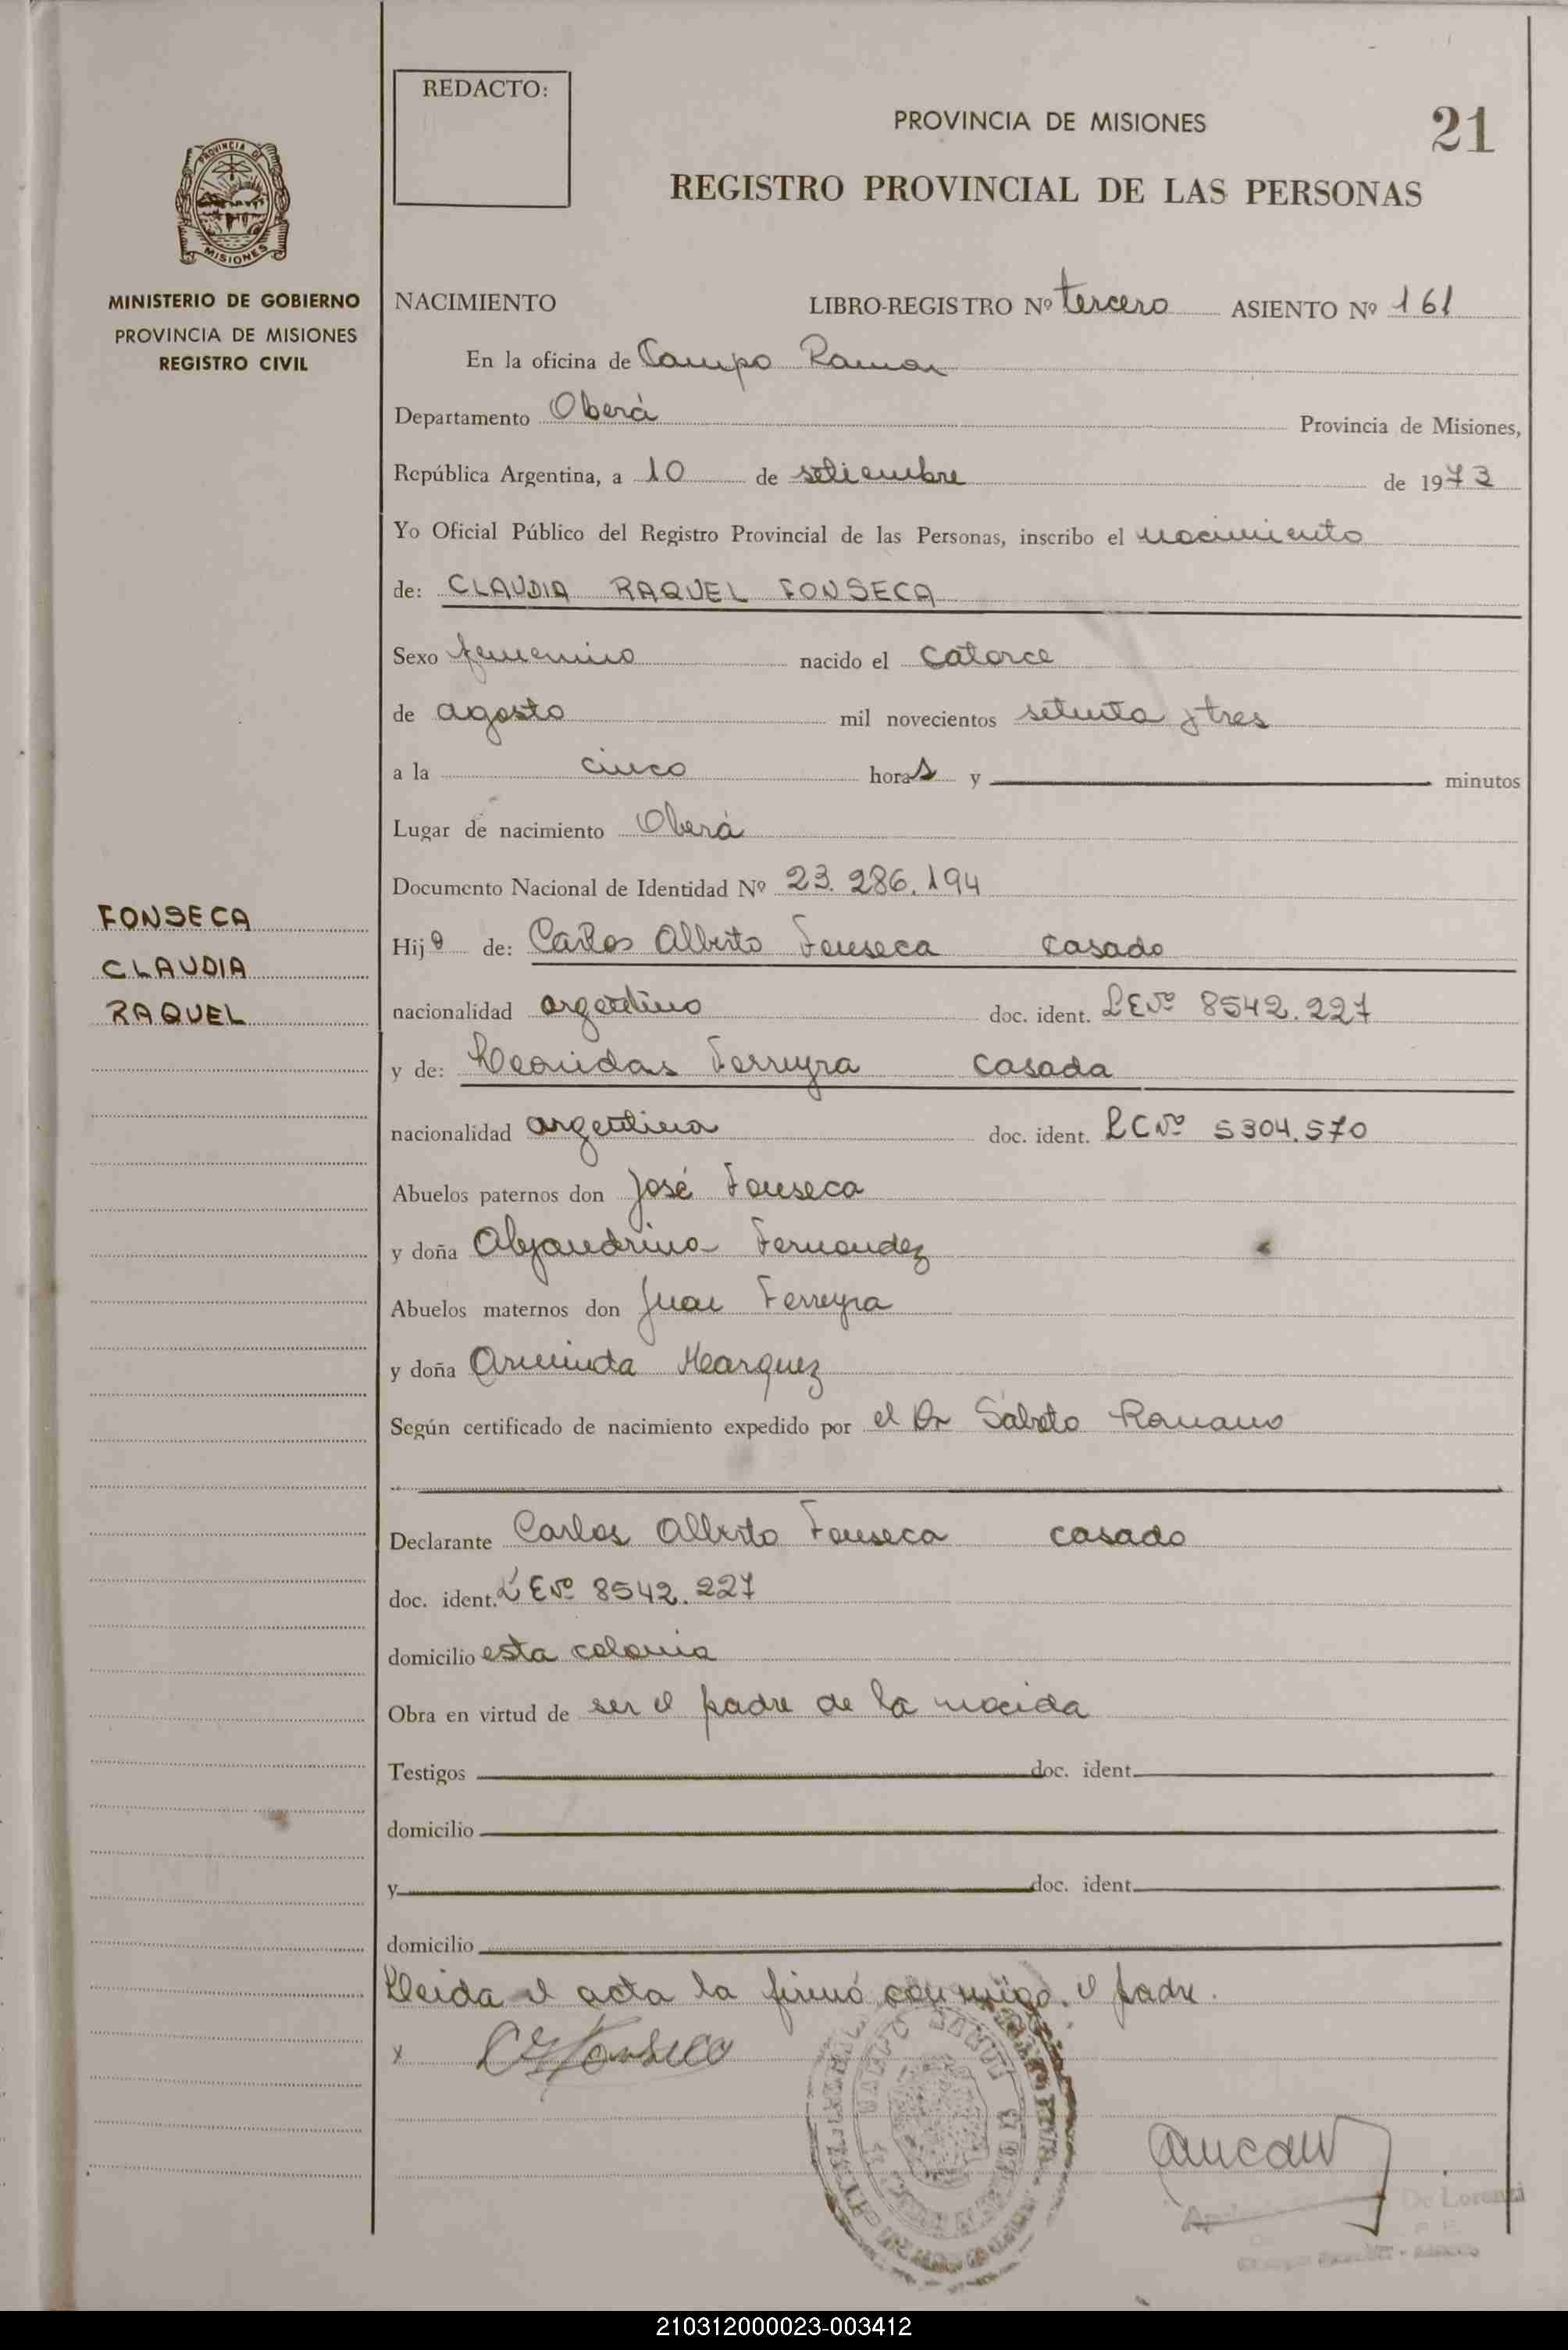 REDACTO:
PROVINCIA DE MISIONES
21
REGISTRO PROVINCIAL DE LAS PERSONAS
PROVINCIA DE
MISIONES
MINISTERIO DE GOBIERNO
PROVINCIA DE MISIONES
REGISTRO CIVIL
NACIMIENTO LIBRO-REGISTRO Nº tercero ASIENTO Nº 161
En la oficina de Campo Ramon
Departamento Oberá Provincia de Misiones,
República Argentina, a 10 de setiembre de 1973
Yo Oficial Público del Registro Provincial de las Personas, inscribo el nacimiento
de: CLAUDIA RAQUEL FONSECA
Sexo femenino nacido el catorce
de agosto mil novecientos setenta y tres
a la cinco horas y minutos
Lugar de nacimiento Oberá
Documento Nacional de Identidad Nº 23.286.194
FONSECA
CLAUDIA
RAQUEL
Hija de: Carlos Alberto Fonseca casado
nacionalidad argentino doc. ident. LE Nº 8542.227
y de: Leonidas Ferreyra casada
nacionalidad argentina doc. ident. LC Nº 5304.570
Abuelos paternos don José Fonseca
y doña Alejandrina Fernandez
Abuelos maternos don Juan Ferreyra
y doña Arminda Marquez
Según certificado de nacimiento expedido por el Dr Sabato Romano
Declarante Carlos Alberto Fonseca casado
doc. ident. LE Nº 8542.227
domicilio esta colonia
Obra en virtud de ser el padre de la nacida
Testigos doc. ident.
domicilio
y doc. ident.
domicilio
Leida el acta la firmó conmigo, el padre.
x Fonseca
De Lorenzi
210312000023-003412